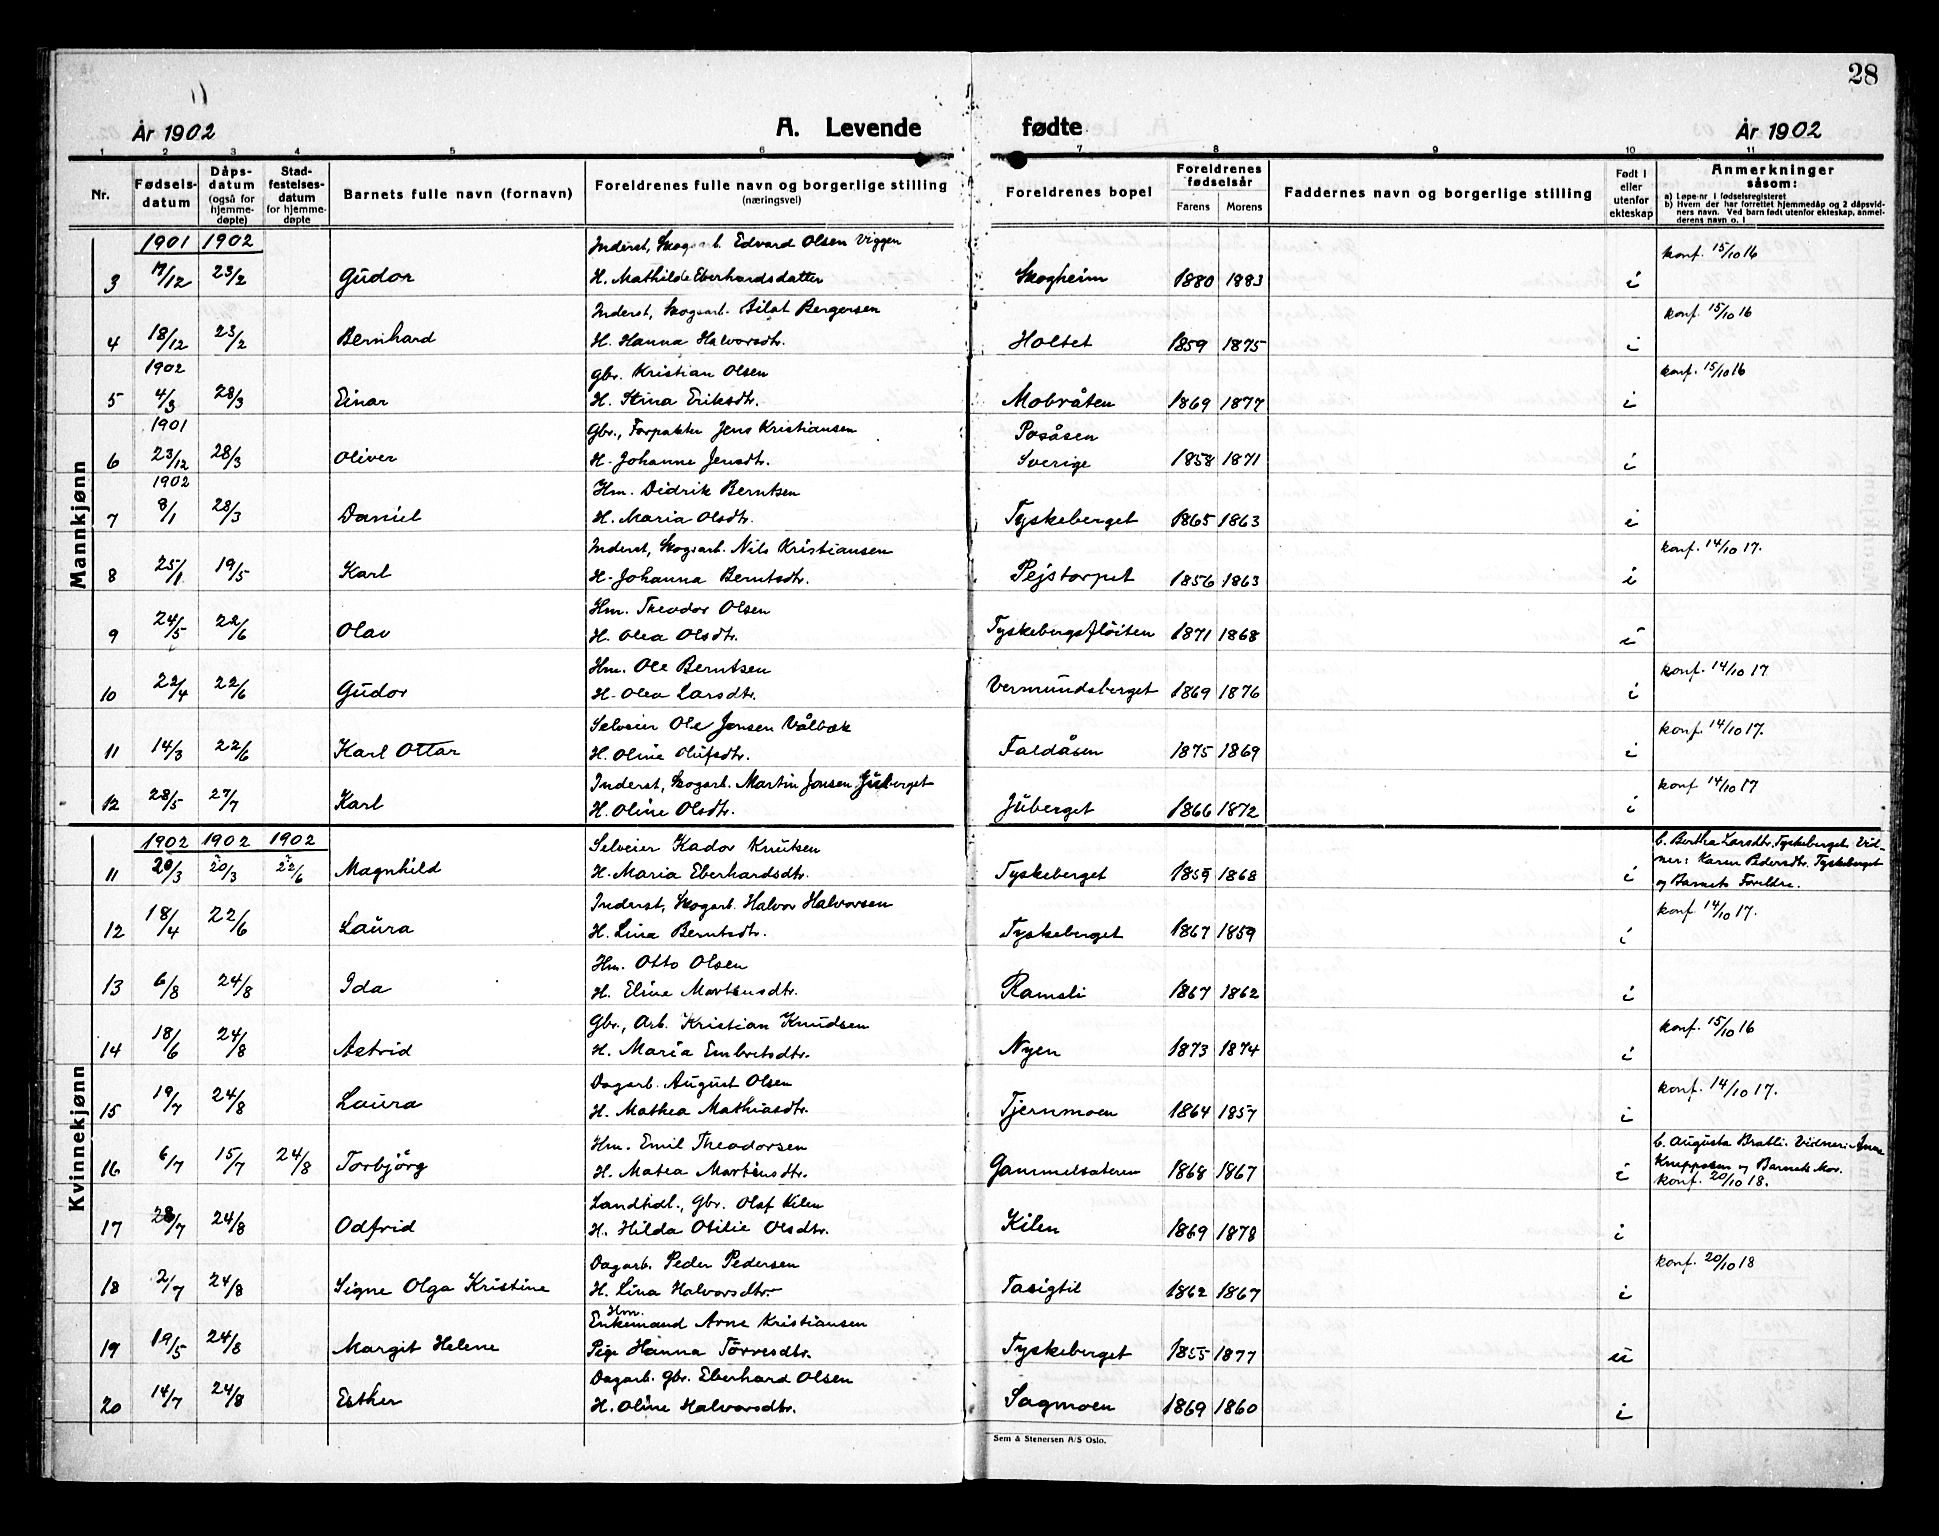 28
År 1902 A. Levende fødte År 1902
1 2 3 4 5 6 7 8 9 10 11
Nr. Fødselsdatum Dåpsdatum (også for hjemmedøpte) Stadfestelsesdatum for hjemmedøpte Barnets fulle navn (fornavn) Foreldrenes fulle navn og borgerlige stilling (næringsvei) Foreldrenes bopel Foreldrenes fødselsår Farens Morens Faddernes navn og borgerlige stilling Født i eller utenfor ekteskap Anmerkninger såsom: a) Løpe-nr i fødselsregisteret b) Hvem der har forrettet hjemmedåp og 2 dåpsvidners navn. Ved barn født utenfor ekteskap, anmelderens navn o. l
Mannkjønn
1901 1902 Inderst, Skogsarb. Edvard Olsen Viggen konf. 15/10 16
3 17/12 23/2 Gudor H. Mathilde Eberhardsdatter Skogheim 1880 1883 i
Inderst, Skogsarb. Ailat Bergersen konf. 15/10 16
4 18/12 23/2 Bernhard H. Hanna Halvorsdtr. Holtet 1859 1875 i
1902 Gbr. Kristian Olsen konf. 15/10 16
5 4/3 28/3 Einar H. Stina Eriksdtr. Mobråten 1869 1877 i
1901 Gbr., Forpakter Jens Kristiansen Posåsen
6 23/12 28/3 Oliver H. Johanne Jensdtr. Sverige 1858 1871 i
1902 Hm. Didrik Berntsen
7 8/1 28/3 Daniel H. Maria Olsdtr. Tyskeberget 1865 1863 i
Inderst, Skogsarb. Nils Kristiansen konf. 14/10 17.
8 25/1 19/5 Karl H. Johanna Berntsdtr. Pejstorpet 1856 1863 i
Hm. Theodor Olsen
9 24/5 22/6 Olav H. Olea Olsdtr. Tyskebergsfløiten 1871 1868 i
Hm. Ole Berntsen konf. 14/10 17
10 22/4 22/6 Gudor H. Olea Larsdtr. Vermundsberget 1869 1876 i
Selveier Ole Jensen Vålbæk konf. 14/10 17.
11 14/3 22/6 Karl Ottar H. Oline Olufsdtr. Faldåsen 1875 1869 i
Inderst, Skogarb. Martin Jonsen Juberget konf 14/10 17
12 28/5 27/7 Karl H. Oline Olsdtr. Juberget 1866 1872 i
Kvinnekjønn
1902 1902 1902 Selveier Kador Knutsen b. Bertha Larsdtr. Tyskeberget Vid-
11 20/3 20/3 22/6 Magnhild H. Maria Eberhardsdtr. Tyskeberget 1859 1868 i ner: Karen Pedersdtr. Tyskeberget
og Barnets Foreldre.
Inderst, Skogarb. Halvor Halvorsen konf 14/10 17.
12 18/4 22/6 Laura H. Lina Berntsdtr. Tyskeberget 1867 1859 i
Hm. Otto Olsen
13 6/8 24/8 Ida H. Eline Martensdtr. Ramsli 1867 1862 i
Gbr., Arb. Kristian Knudsen konf. 15/10 16
14 18/6 24/8 Astrid H. Maria Embretsdtr. Nyen 1873 1874 i
Dagarb. August Olsen konf. 14/10 17.
15 19/7 24/8 Laura H. Mathea Mathiasdtr. Tjernmoen 1864 1857 i
Hm. Emil Theodorsen b. Augusta Bratli. Vidner:
16 6/7 15/7 24/8 Torbjörg H. Matea Martensdtr. Gammelsæteren 1868 1867 i og Barnets Mor.
konf. 20/10 18.
Landhdl., Gbr. Olaf Kilen
17 28/7 24/8 Odfrid H. Hilda Otilie Olsdtr. Kilen 1869 1878 i
Dagarb. Peder Pedersen konf. 20/10 18
18 2/7 24/8 Signe Olga Kristine H. Lina Halvorsdtr. Tasigtil 1862 1867 i
Hm.
Enkemand Arne Kristiansen
19 19/5 24/8 Margit Helene Pige Hanna Torresdtr. Tyskeberget 1855 1877 u
Dagarb. Gbr. Eberhard Olsen
20 14/7 24/8 Esther H. Oline Halvorsdtr. Sagmoen 1869 1860 i
Sem & Stenersen A/S Oslo.